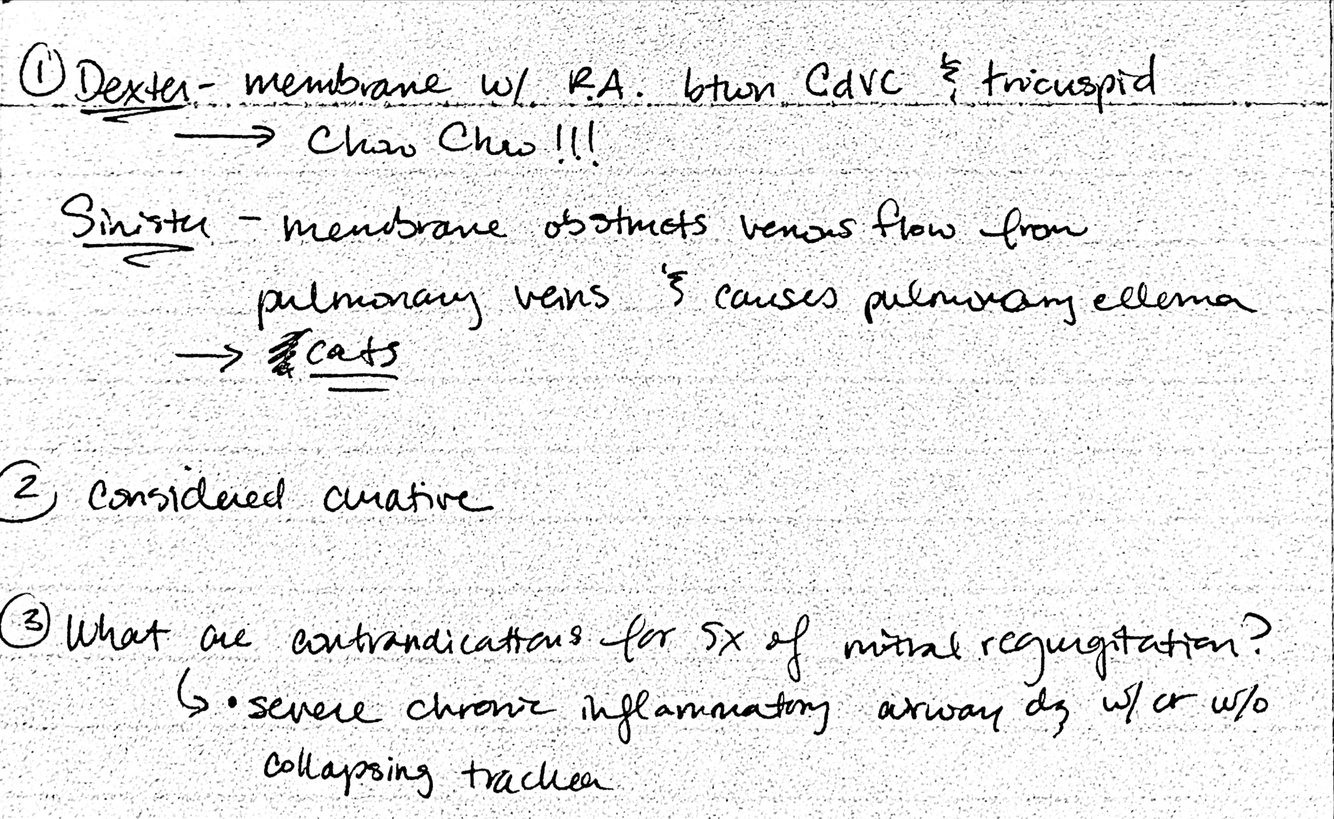 ① Dexter - membrane w/ R.A. btwn CdVC & tricuspid
→ Chow Chow!!!
Sinister - membrane obstructs venous flow from
pulmonary veins & causes pulmonary edema
→ cats
② considered curative
③ What are contrandications for Sx of mitral regurgitation?
↳ • severe chronic inflammatory airway dz w/ or w/o
collapsing trachea